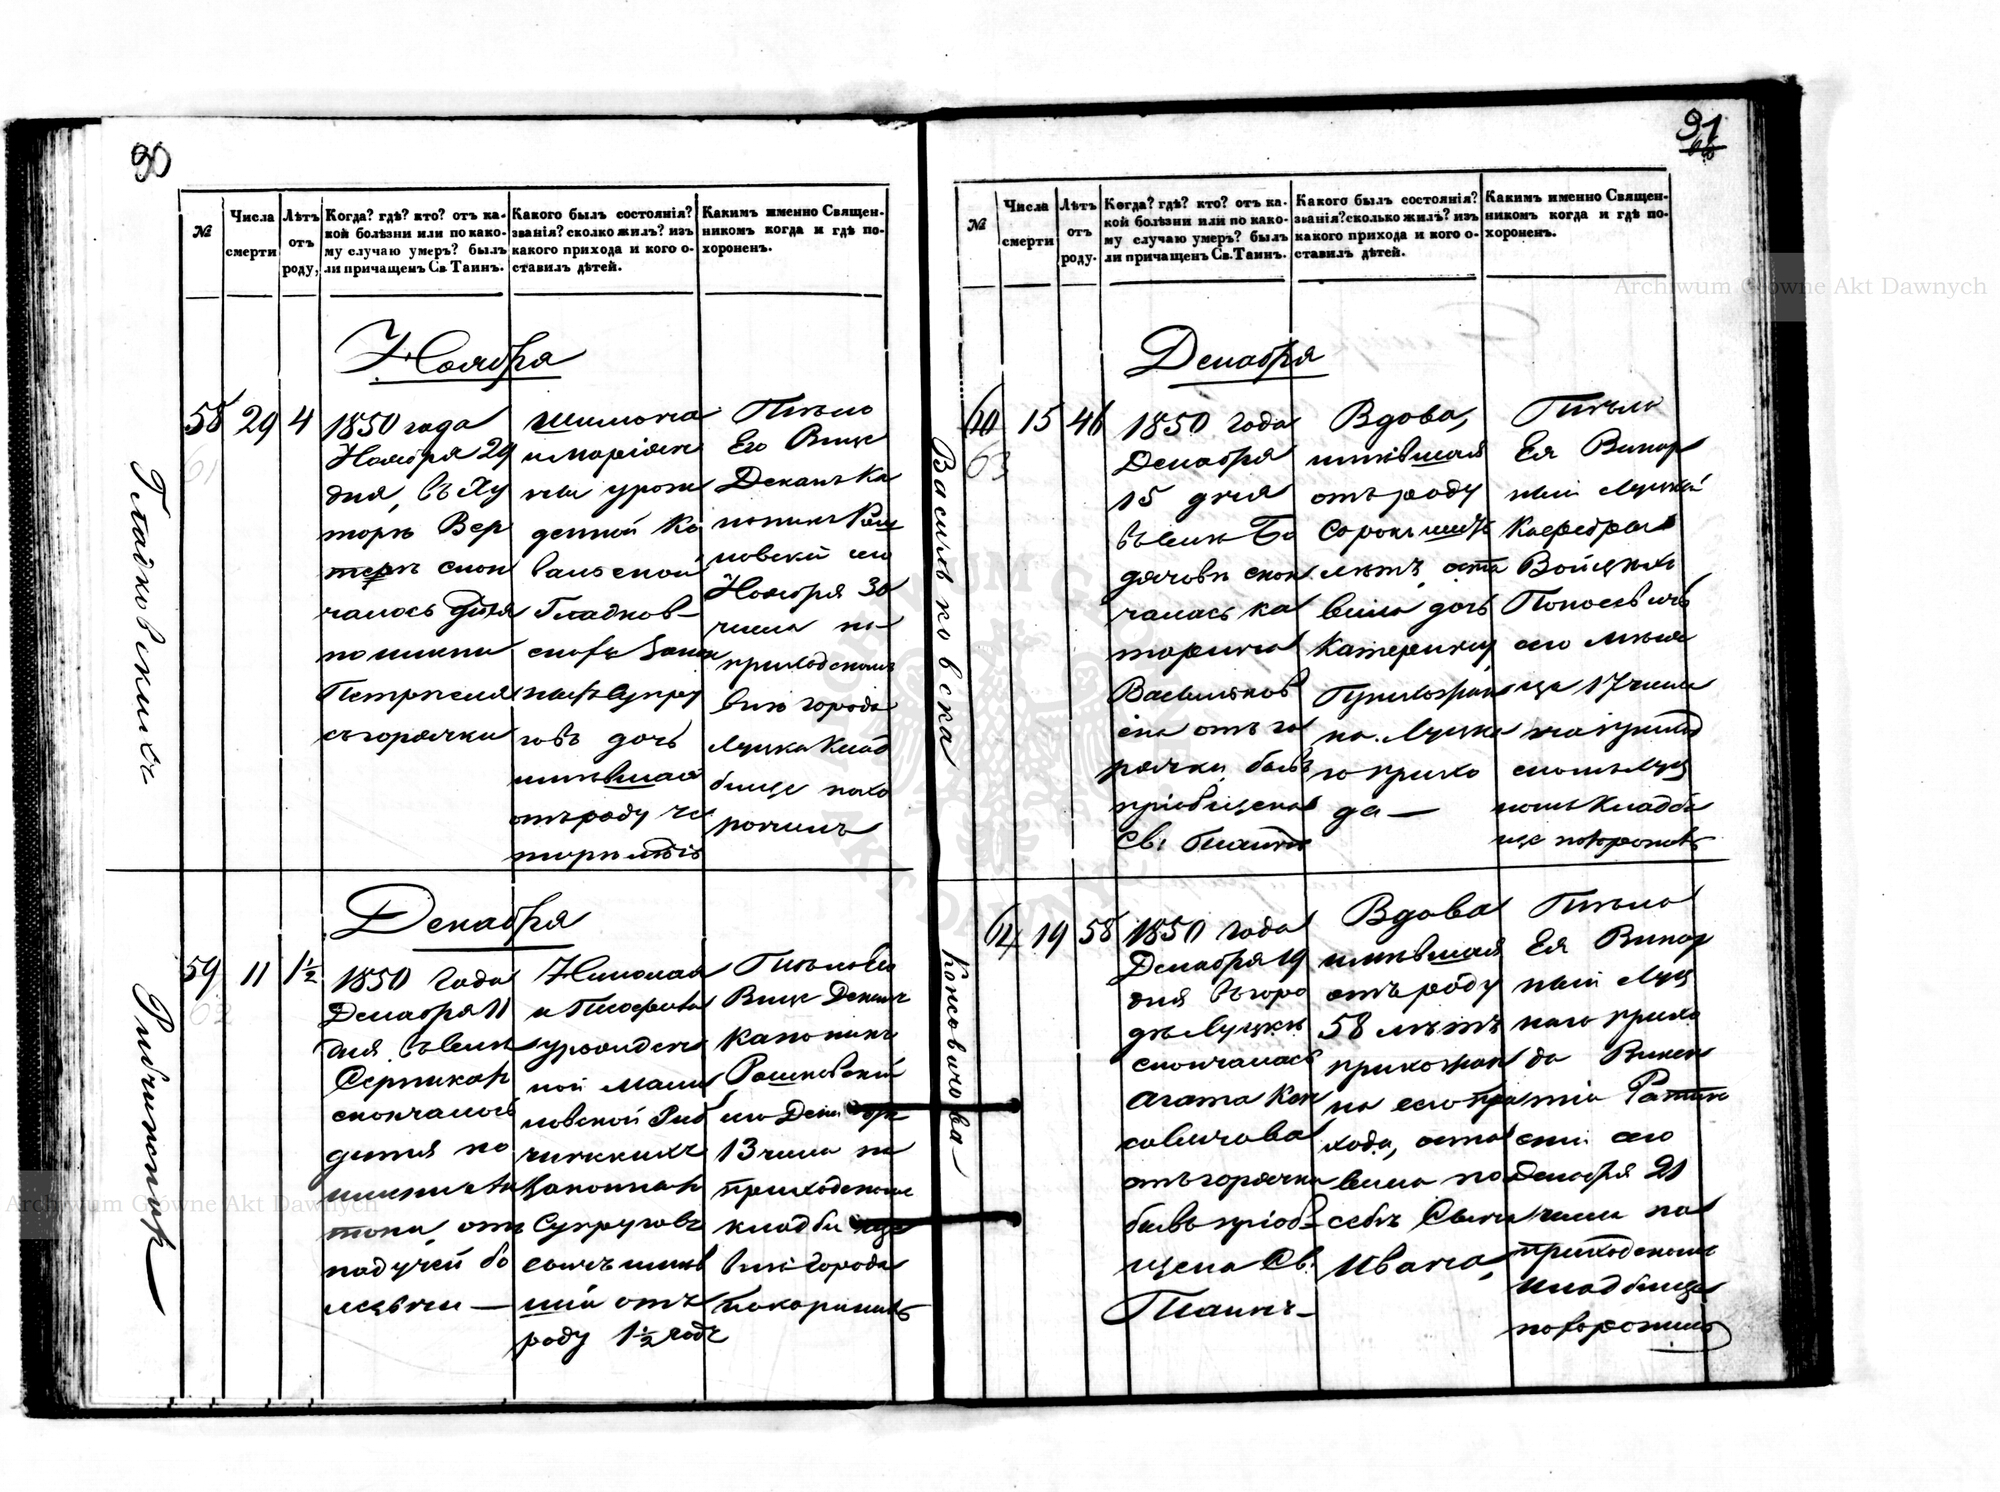 90
№
Числа
смерти
Лѣтъ
отъ
роду,
Когда? гдѣ? кто? отъ ка-
кой болѣзни или по како-
му случаю умеръ? былъ
ли причащенъ Св Таинъ.
Какого былъ состоянія?
званія? сколко жилъ? изъ
какого прихода и кого о-
ставилъ дѣтей.
Какимъ именно Священ-
никомъ когда и гдѣ по-
хороненъ.
Ноября
58
61
29
4
1850 года
Ноября 29
дня, въ Ху
торѣ Вер
скон
чалось дитя
по имени
Петрунеля
съ горячки
Шимона
и Маріян
ны урож
денной Ко
вальской
Гладков-
скихъ закон
ныхъ Супру
говъ дочь
имѣвшая
отъ роду че
тыри
Тѣло
Его Вице
Деканъ Ка
ноникъ Раш
новскій сего
Ноября 30
числа на
приходскомъ
внѣ города
Луцка Клад
бище похо
ронилъ
Гладковскихъ
Декабря
59
62
11
1½
1850 года
Декабря 11
дня въ селѣ
скончалось
дитя по
имени Ан
тонъ, отъ
падучей бо
лезни —
Николая
и Теофили
урожден
ной Мали
новской
законныхъ
Супруговъ
сынъ имѣв
шій отъ
роду 1½ года
Тѣло Его
Вице Деканъ
Каноникъ
Рашковскій
сего Дек
13 числа на
приходскомъ
кладби ще
внѣ города
похоронилъ
91
№
Числа
смерти
Лѣтъ
отъ
роду.
Когда? гдѣ? кто? отъ ка-
кой болѣзни или по како-
му случаю умеръ? былъ
ли причащенъ Св. Таинъ.
Какого былъ состоянія?
званія? сколько жилъ? изъ
какого прихода и кого о-
ставилъ дѣтей.
Какимъ именно Священ-
никомъ когда и гдѣ по-
хороненъ.
Декабря
60
63
15
46
1850 года
Декабря
15 дня
въ селѣ Бо
дячовѣ скон
чалась Ка
тарина
Васильков
ска отъ го
рячки, бывъ
пріобщена
Св. Таинъ
Вдова,
имѣвшая
отъ роду
Сорокъ шесть
лѣтъ, оста
вила дочь
Катерину
Прихожан
ка Луцка
го прихо
да —
Тѣло
Ея Викар
ный Луцкій
Кафедры
Войцехъ
сего мѣся
ца 17 числа
на приход
скомъ Луц
комъ Кладби
ще похоронилъ
Васильковска
64
19
58
1850 года
Декабря 19
дня въ горо
дѣ Луцкѣ
скончалась
Агата Кон
совичова
отъ горячки
бывъ пріоб
щена Св.
Таинъ —
Вдова
имѣвшая
отъ роду
58 лѣтъ
прихожан
ка сего при
хода, оста
вила по
себѣ Сына
Ивана,
Тѣло
Ея Викар
ный Луц
каго прихо
да Викен
тій
сего
Декабря 21
числа на
приходскомъ
кладбище
похоронилъ
Консовичова
Archiwum Główne Akt Dawnych
Archiwum Główne Akt Dawnych